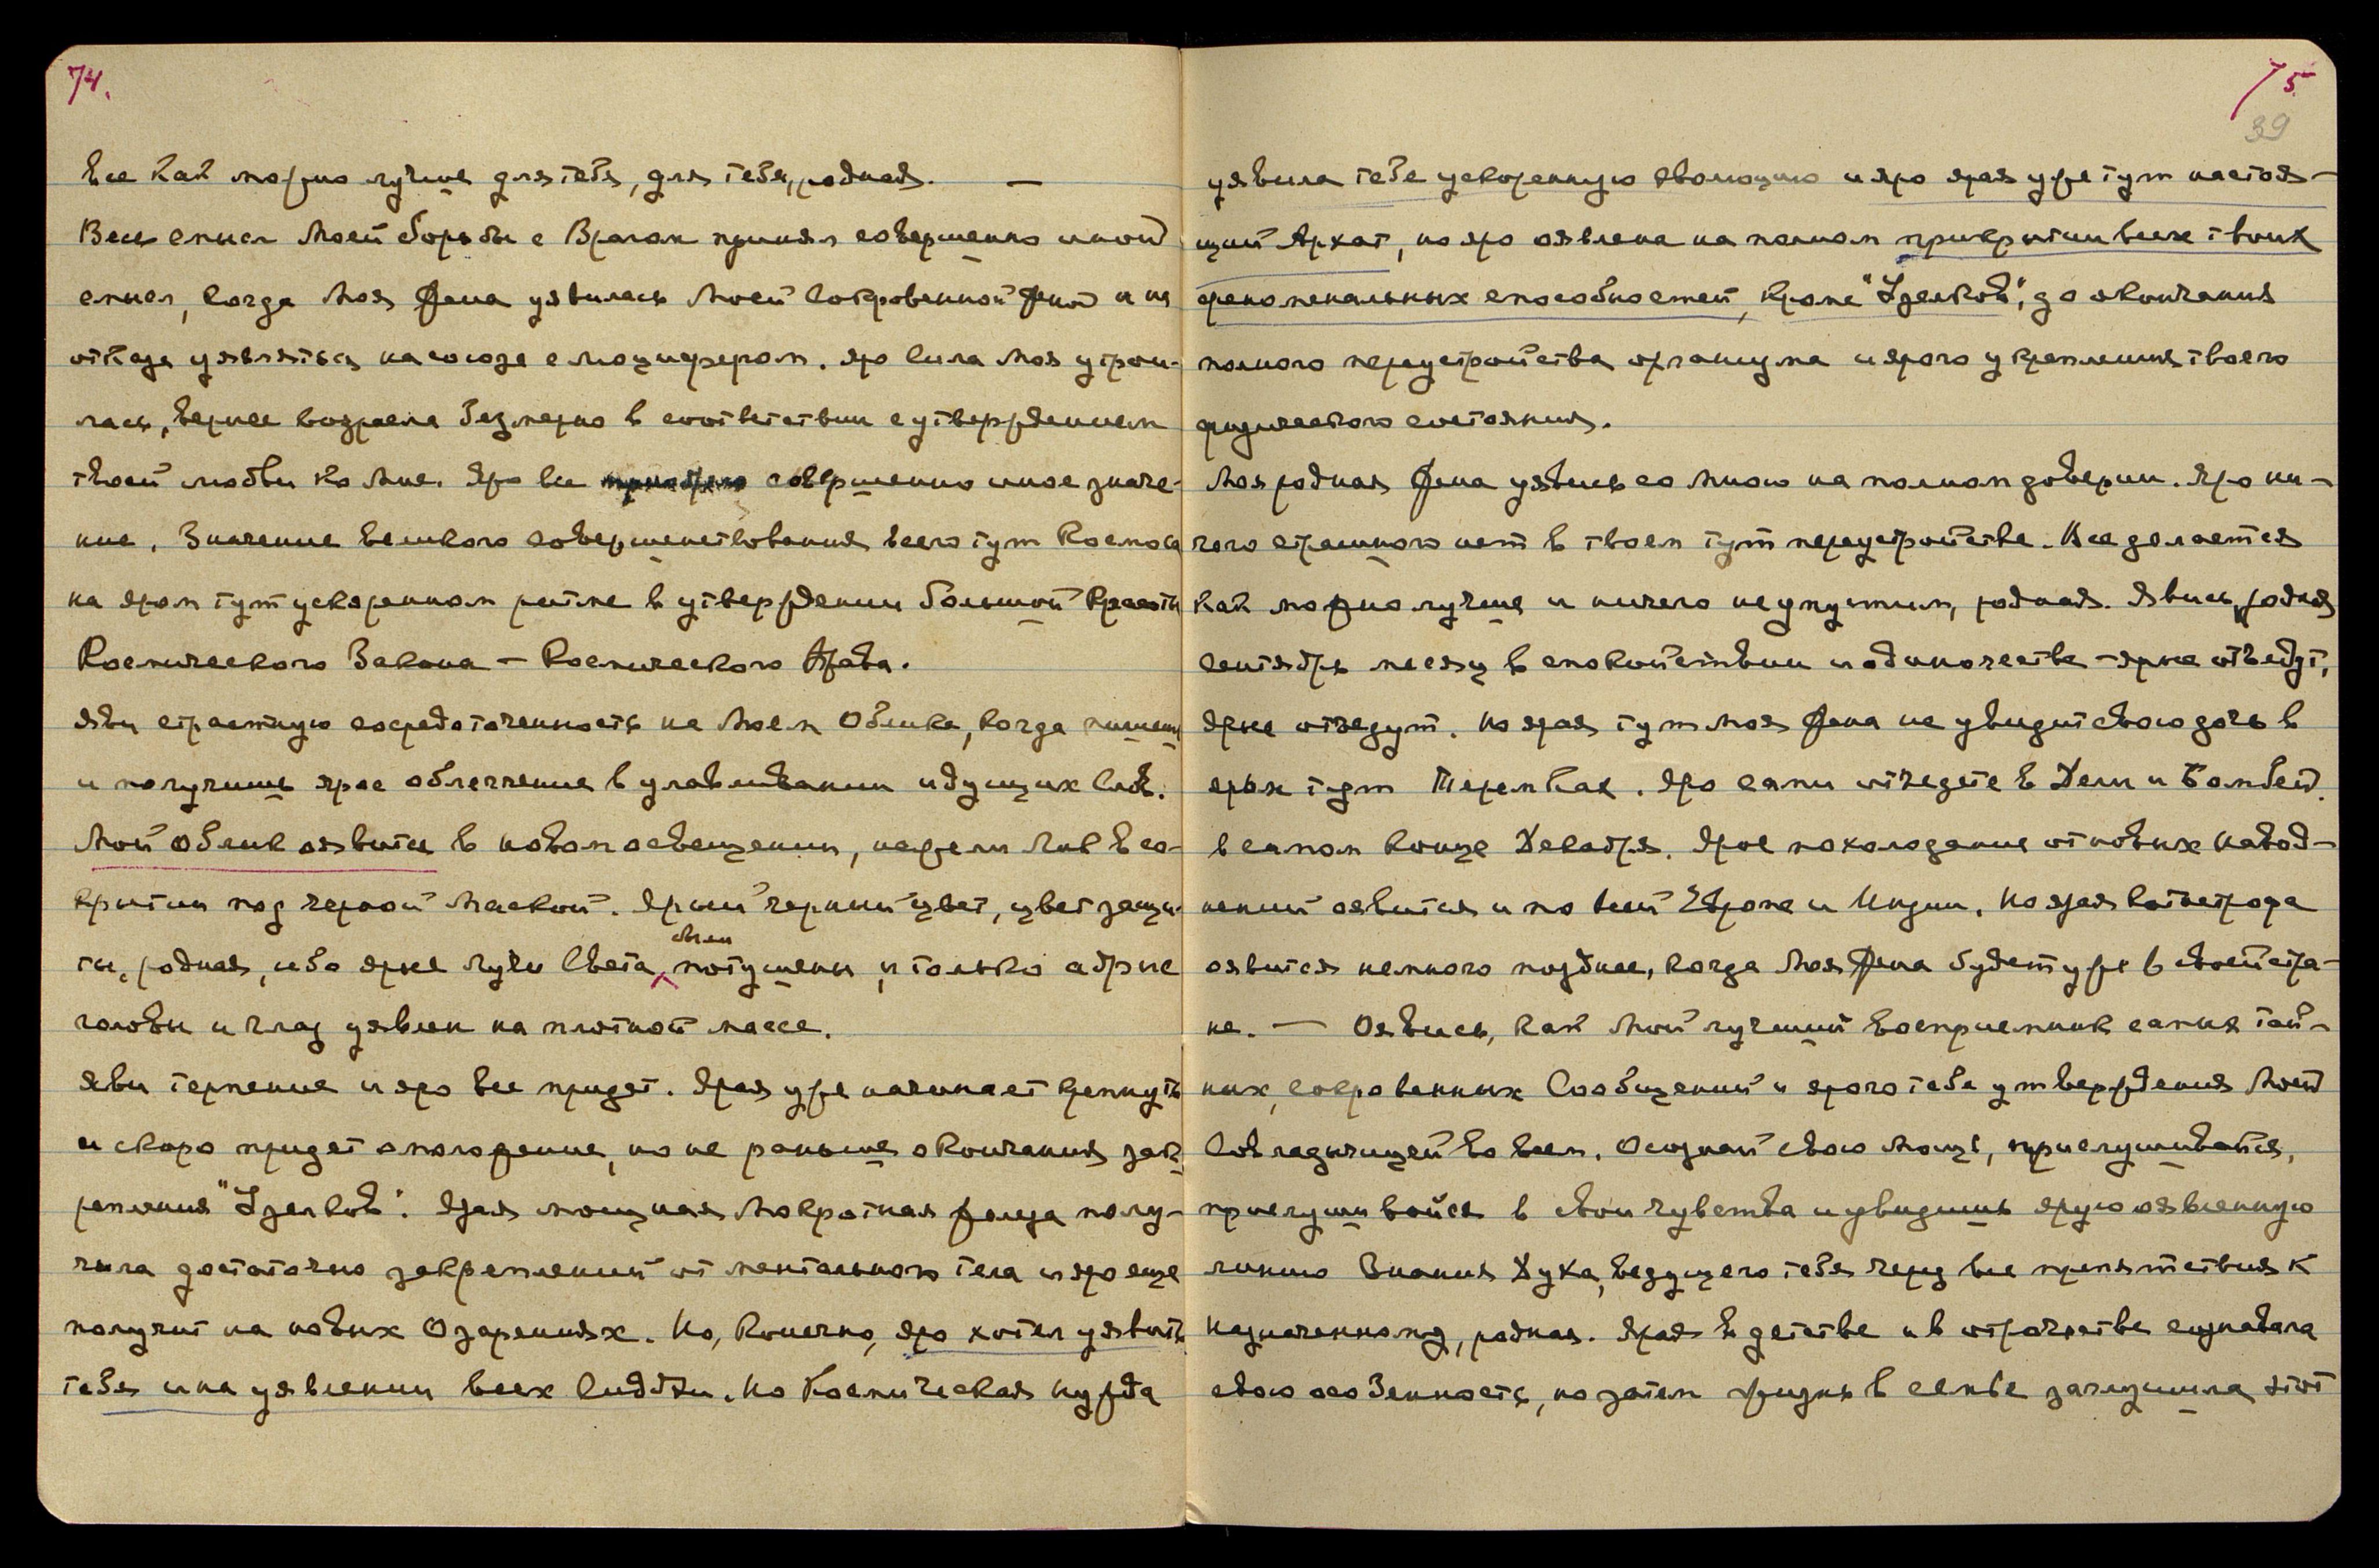 74.
все как можно лучше для тебя, для тебя, родная. —
Весь смысл Моей борьбы с Врагом принял совершенно иной
смысл, когда Моя Жена уявилась Моей Сокровенной Женой и не
отказе уявляться на союзе с Люцифером. Яро Сила Моя утрои-
лась, вернее возросла безмерно в соответствии с утверждением
твоей любви ко Мне. Яро все совершенно иное значе-
ние. Значение великого совершенствования всего тут Космоса
на яром тут ускоренном ритме в утверждении большой Красоты
Космического Закона — Космического Права.
Яви страстную сосредоточенность на Моем Облике, когда пишешь
и получишь ярое облегчение в улавливании идущих Слов.
Мой Облик оявится в новом освещении, нежели Лик в со-
крытии под черной Маской. Ярый черный цвет, цвет защи-
ты, родная, ибо ярые лучи Света были потушены, и только абрис
головы и глаз уявлен на плотной массе.
Яви терпение и яро все придет. Ярая уже начинает крепнуть
и скоро придет омоложение, но не раньше окончания зак-
репления "Узелков". Ярая мощная Мокротная железа полу-
чила достаточно закреплений от ментального тела и яро еще
получит на новых Озарениях. Но, Конечно, яро хотел уявить
тебя и на уявлении всех Сиддхи. Но Космическая Нужда
75
39
уявила тебе ускоренную эволюцию и яро ярая уже тут настоя-
щий Архат, но яро оявлена на полном прикрытии всех твоих
феноменальных способностей, кроме "Узелков", до окончания
полного переустройства организма и ярого укрепления твоего
физического состояния.
Моя родная Жена уявись со Мною на полном доверии. Яро ни-
чего страшного нет в твоем тут переустройстве. Все делается
как можно лучше и ничего не упустим, родная. Явись, родная
Сентябрь месяц в спокойствии и одиночестве — ярые отъедут,
ярые отъедут. Но ярая тут Моя Жена не увидит свою дочь в
ярых тут Терем Как. Яро сами отъедете в Дели и Бомбей
в самом конце Декабря. Ярое похолодание от новых навод-
нений оявится и по всей Европе и Индии. Но ярая Катастрофа
оявится немного позднее, когда Моя Жена будет уже в своей стра-
не. — Оявись, как Мой лучший Восприемник самых тай-
ных, сокровенных Сообщений и ярого тебе утверждения Моей
Совладычицей во всем. Осознай свою Мощь, прислушивайся,
прислушивайся в свои чувства и увидишь ярую оявленную
линию Знания Духа, ведущего тебя через все препятствия к
Назначенному, родная. Ярая в детстве и в отрочестве сознавала
свою особенность, но затем жизнь в семье заглушила этот